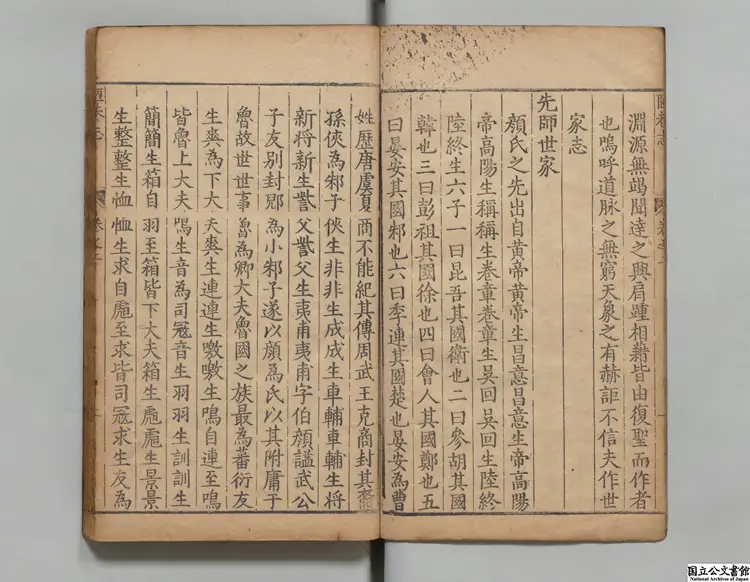 陋巷志
淵源無竭聞達之興肩踵相繼皆由復聖而作者
也嗚呼道脉之無窮天泉之有赫詎不信夫作世
家志
先師世家
顏氏之先出自黃帝黃帝生昌意昌意生帝高陽
帝高陽生稱稱生卷章卷章生吳回吳回生陸終
陸終生六子一曰昆吾其國衛也二曰參胡其國
韓也三曰彭祖其國徐也四曰會人其國鄭也五
曰晏安其國邾也六曰季連其國楚也晏安為曹
姓歷唐虞夏商不能紀其傳周武王克商封其裔
孫俠為邾子俠生非非生成成生車輔車輔生將
新將新生訾父訾父生夷甫夷甫字伯顏謚武公
子友別封郳為小邾子遂以顏為氏以其附庸于
魯故世世事魯為卿大夫魯國之族最為蕃衍友
生爽為下大夫爽生連連生噭噭生鳴自連至鳴
皆魯上大夫鳴生音為司寇音生羽羽生訓訓生
簡簡生箱自羽至箱皆下大夫箱生彪彪生景景
生整整生恤恤生求自彪至求皆司寇求生友為
国立公文書館
National Archives of Japan